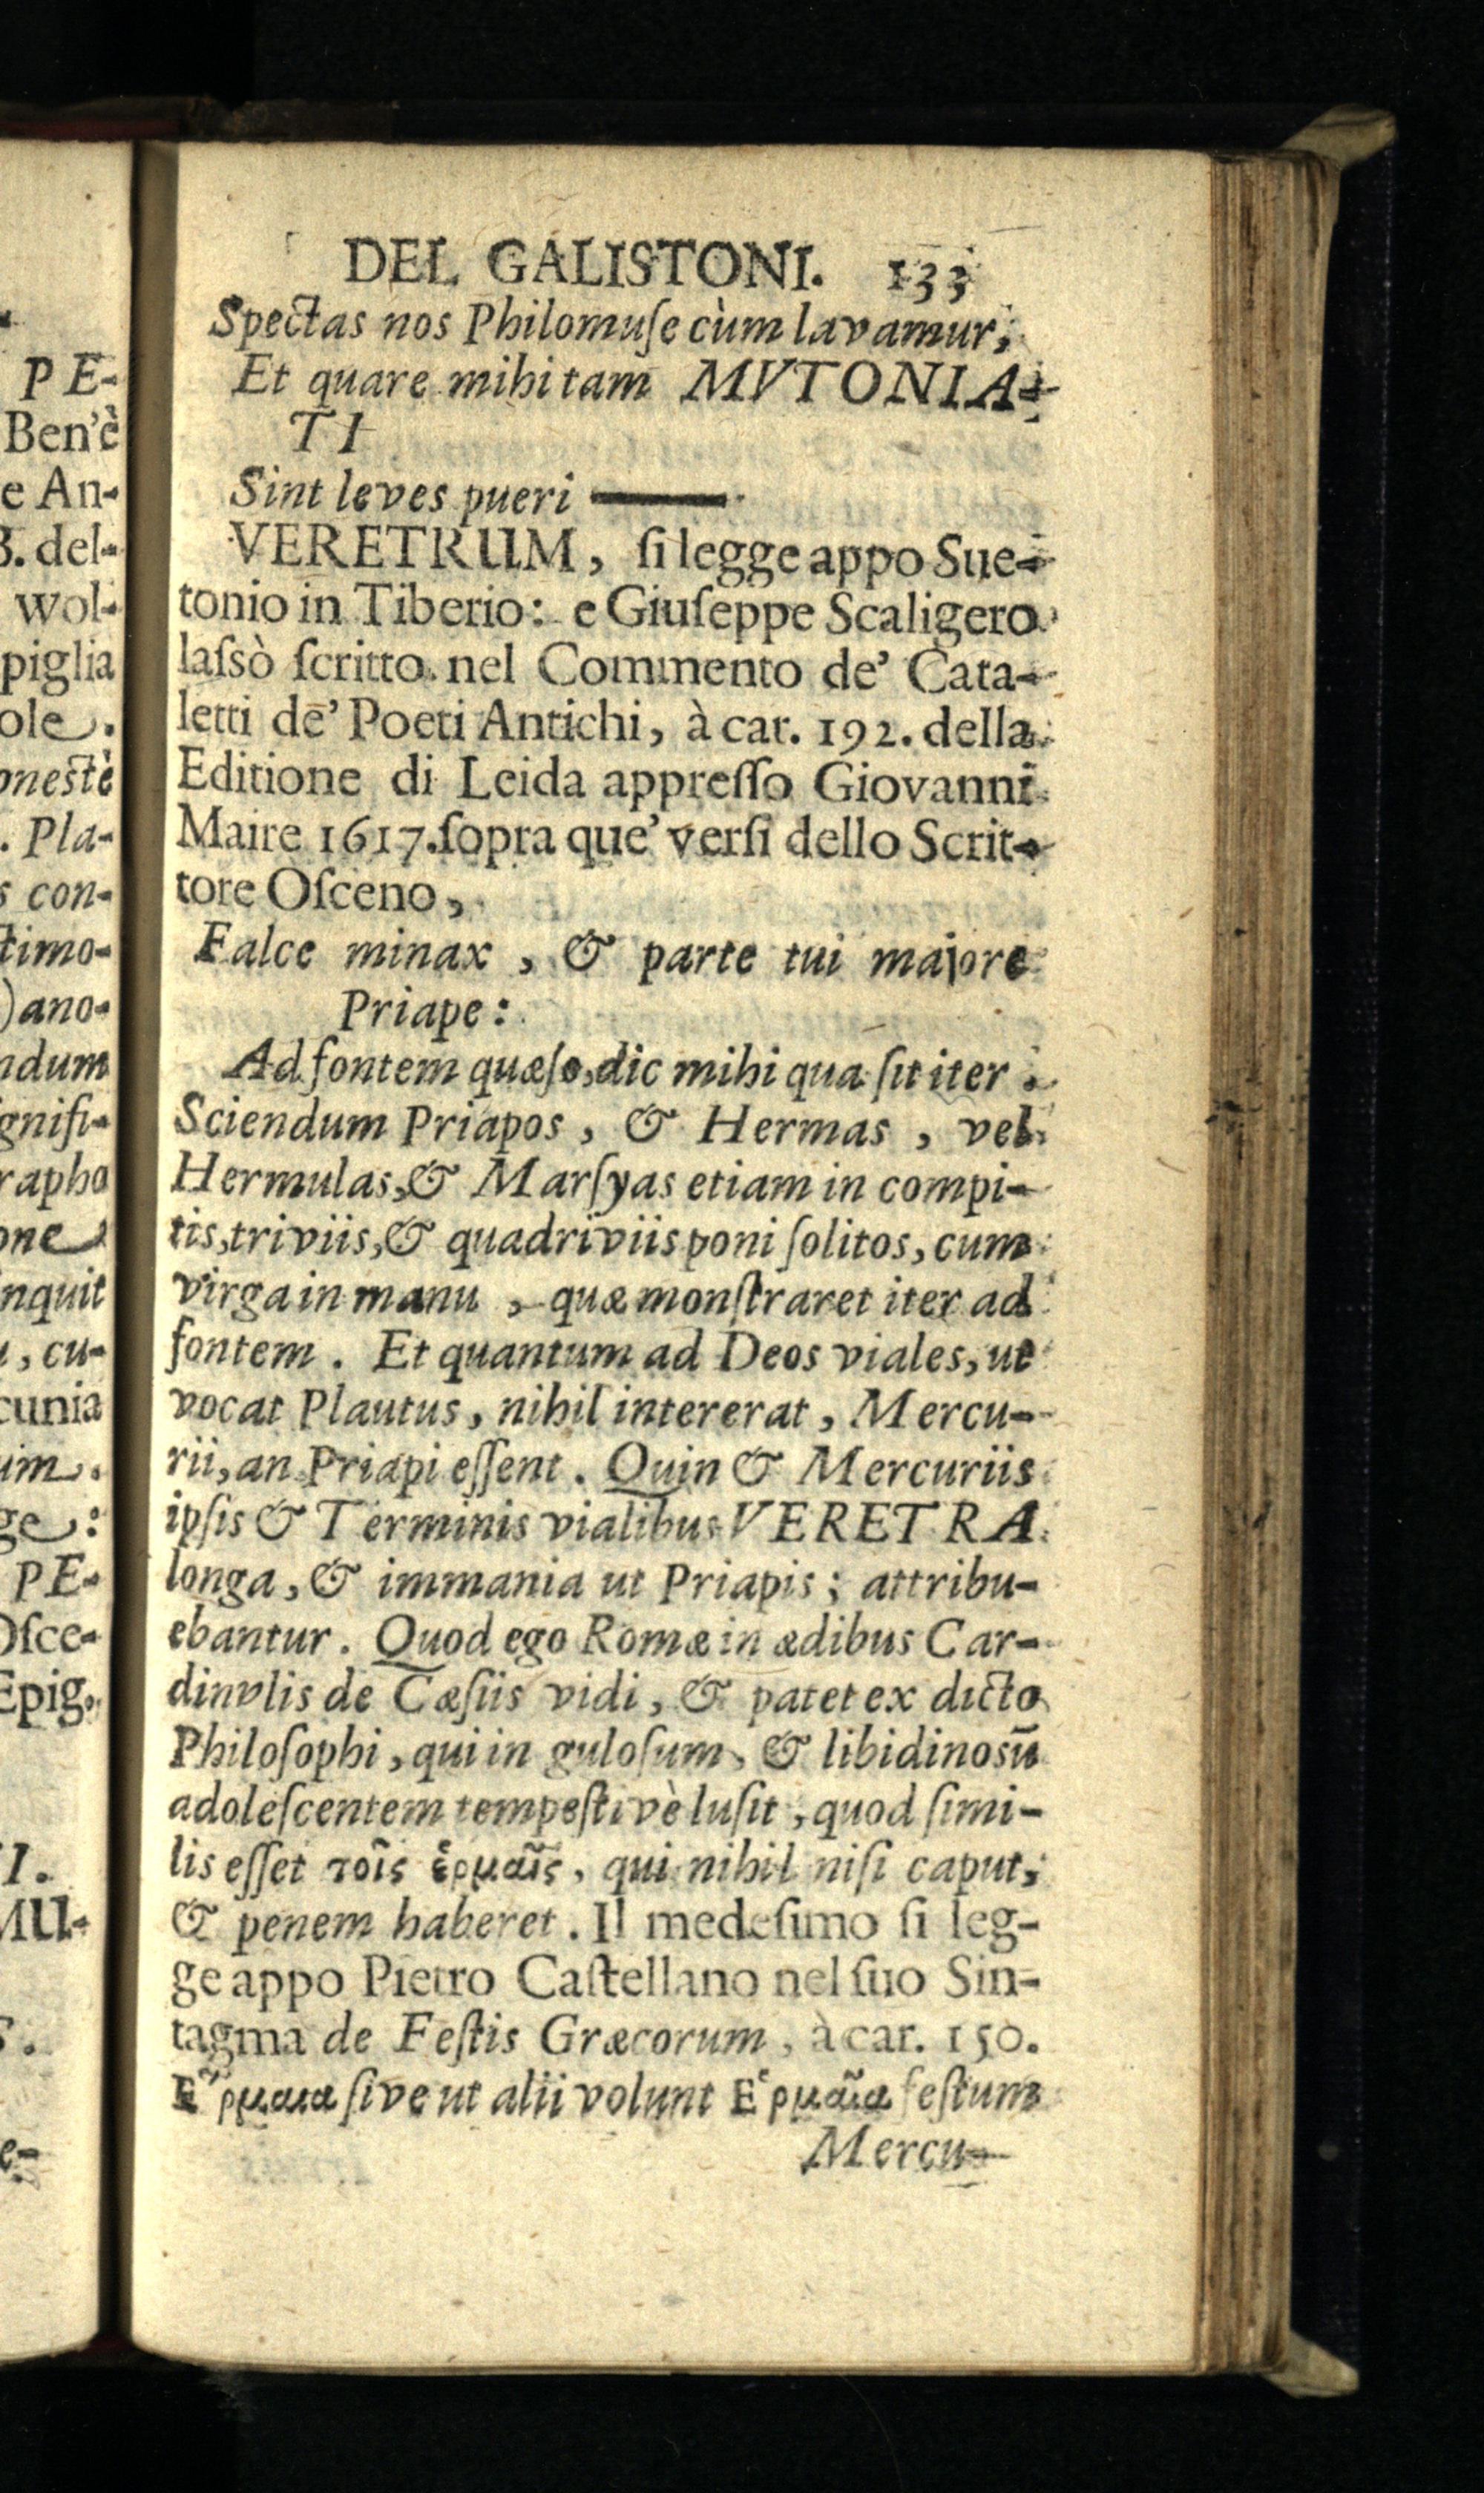 DEL GALISTONI. 133
Spectas nos Philomuſe cùm lavamur,
Et quare mihi tam MVTONIA-
TI
Sint leves pueri ———
VERETRUM, ſi legge appo Sue-
tonio in Tiberio: e Giuſeppe Scaligero
laſsò ſcritto nel Commento de' Cata-
letti de' Poeti Antichi, à car. 192. della
Editione di Leida appreſſo Giovanni
Maire 1617. ſopra que' verſi dello Scrit-
tore Oſceno,
Falce minax, & parte tui majore
Priape:
Ad fontem quæſo, dic mihi qua ſit iter.
Sciendum Priapos, & Hermas, vel
Hermulas, & Marſyas etiam in compi-
tis, triviis, & quadriviis poni ſolitos, cum
virga in manu, quæ monſtraret iter ad
fontem. Et quantum ad Deos viales, ut
vocat Plautus, nihil intererat, Mercu-
rii, an Priapi eſſent. Quin & Mercuriis
ipſis & Terminis vialibus VERETRA
longa, & immania ut Priapis; attribu-
ebantur. Quod ego Romæ in ædibus Car-
dinvlis de Cæſiis vidi, & patet ex dicto
Philoſophi, qui in guloſum, & libidinosū
adoleſcentem tempeſtivè luſit, quod ſimi-
lis eſſet τοῖς ἑρμαῖς, qui nihil niſi caput,
& penem haberet. Il medeſimo ſi leg-
ge appo Pietro Caſtellano nel ſuo Sin-
tagma de Feſtis Græcorum, à car. 150.
Ε῞ρμαια ſive ut alii volunt Ε῾ρμαῖα feſtum
Mercu-
PE-
Ben'è
e An-
B. del-
wol-
piglia
ole.
oneſtè
. Pla-
s con-
timo-
)ano-
ndum
gnifi-
rapho
one
inquit
, cu-
cunia
um.
ge:
PE-
Oſce-
Epig.
I.
MU-
S.
e-